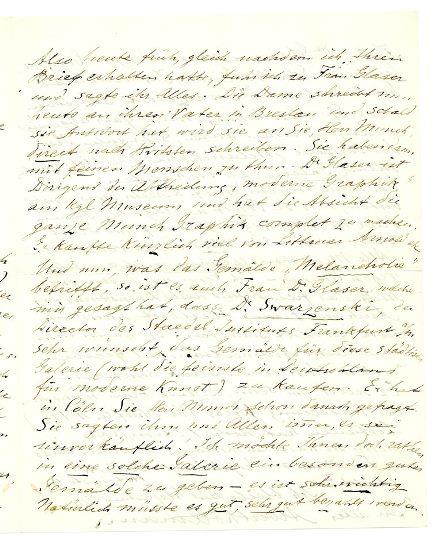 Also heute früh, gleich nachdem ich Ihren
Brief erhalten hatte, fuhr ich zu Frau Glaser
und sagte ihr Alles. Die Dame schreibt nun
heute an ihren Vater in Breslau und sobald
sie Antwort hat, wird sie an Sie, Herr Munch,
direct nach Kvitsten schreiben. Sie haben
mit feinen Menschen zu thun. Dr Glaser ist
Dirigent der Abtheilung „moderne Graphik"
am Kgl Museum und hat die Absicht die
ganze Munch Graphik complet zu machen.
Er kaufte kürzlich viel von
Und nun, was das Gemälde „Melancholie"
betrifft, so ist es auch Frau Dr. Glaser, welche
mir gesagt hat, dass Dr. Swarzenski, der
Director des Staedel Instituts Frankfurt
sehr wünscht das Gemälde für diese städtische
Galerie (wohl die feinste in Deutschland
für moderne Kunst) zu kaufen. Er hat
in Cöln Sie, Herr Munch, schon danach gefragt
Sie sagten ihm und Allen immer, es sei
unverkäuflich. Ich möchte Ihnen doch rathen
in eine solche Galerie ein besonders gutes
Gemälde zu geben – es ist sehr wichtig
Natürlich müsste es gut, sehr gut bezahlt werden.